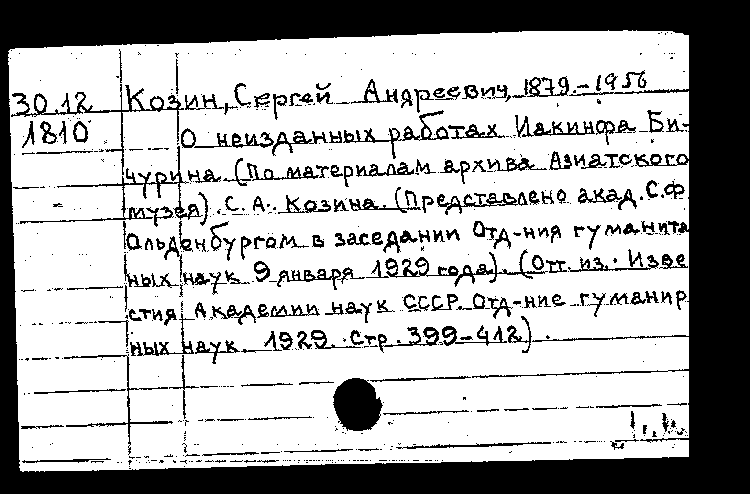 30.12 Козин, Сергей Андреевич, 1879.-1956
1810 О неизданных работах Иакинфа Би-
чурина. (По материалам архива Азиатского
музея). С. А. Козина. (Представлено акад. С.Ф.
Ольденбургом в заседании Отд-ния гуманита
ных наук 9 января 1929 года). (Отт. из: Изве
стия Академии наук СССР. Отд-ние гуманир
ных наук. 1929. Стр. 399-412).